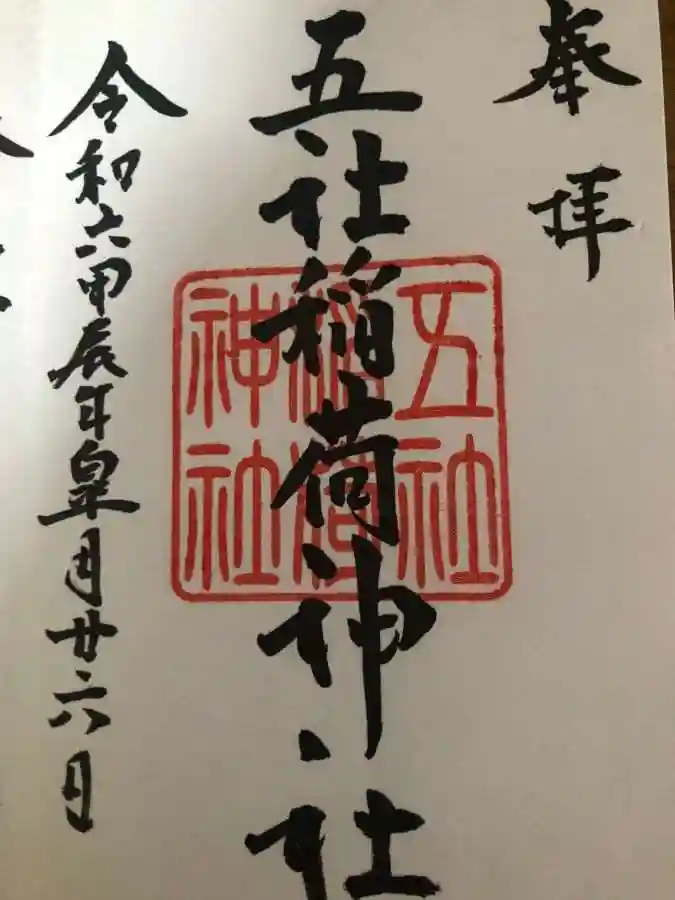 奉拝
五社稲荷神社
五社稲荷神社
令和六甲辰年皐月廿六日